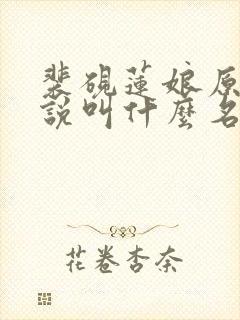 裴硯蓮娘原
說叫什麼名
花卷杏奈